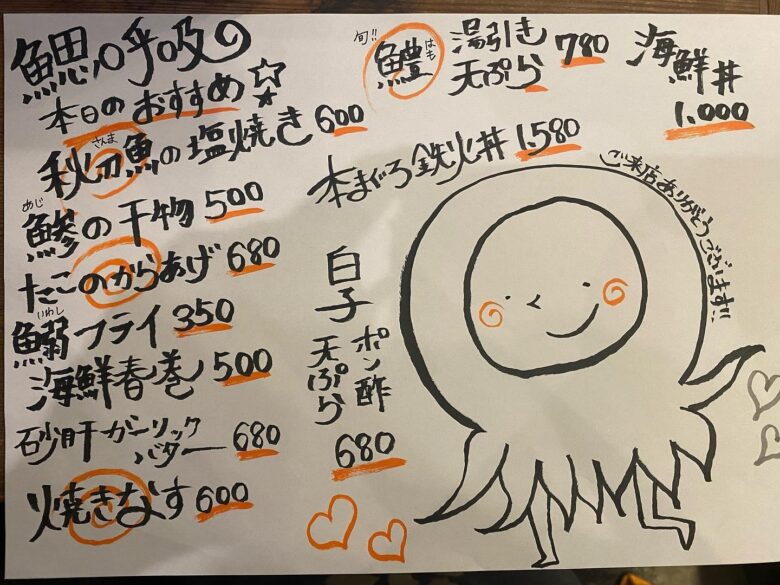 鰓呼吸の
本日のおすすめ☆
さんま
秋刀魚の塩焼き 600
めじ
鯵の干物 500
たこのからあげ 680
いわし
鰯フライ 350
海鮮春巻 500
砂肝ガーリックバター 680
焼きなす 600
旬!!
鱧 はも
湯引き
天ぷら 780
海鮮丼
1.000
本まぐろ鉄火丼 1.580
白子
ポン酢
天ぷら
680
ご来店ありがとうございます!!